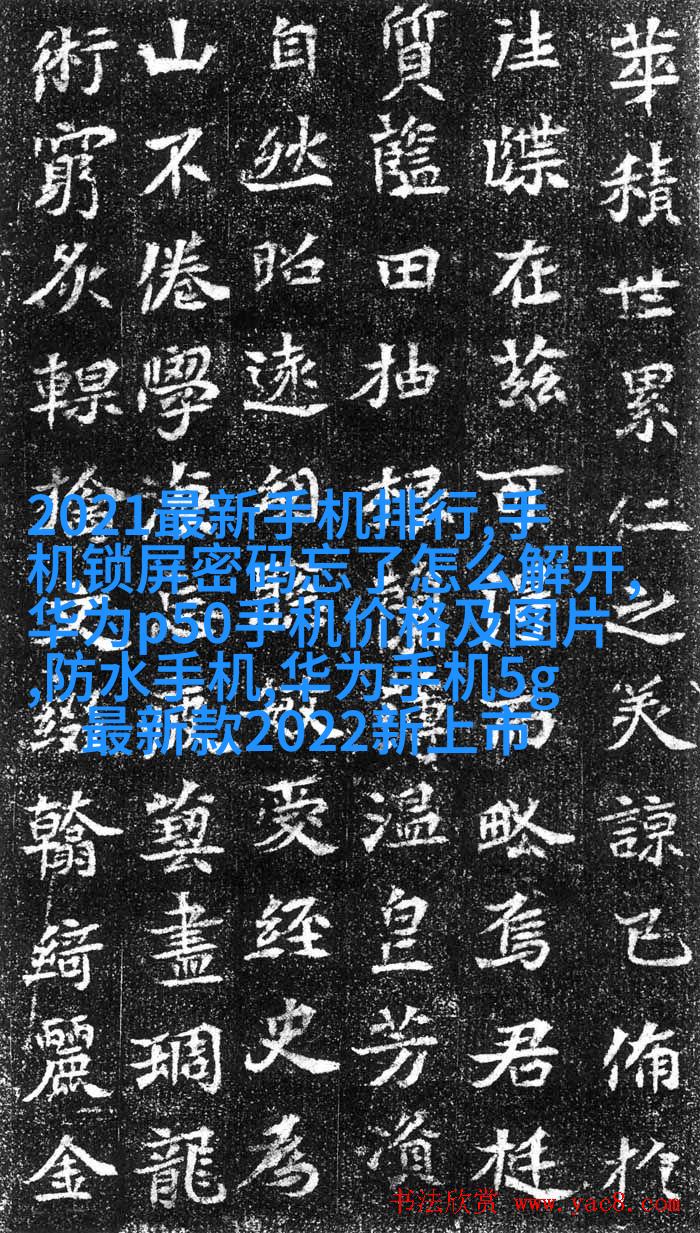 華積世累仁之美諒已備於
牒在茲可而略焉君挺
質藍田抽根溫芳
自然昭遠愛經史為
山不倦學海藝盡琱龍
術窮炙輠翰綺麗金
2021最新手机排行,手
机锁屏密码忘了怎么解开,
华为p50手机价格及图片
,防水手机,华为手机5g
最新款2022新上市
书法欣赏 www.yac8.com